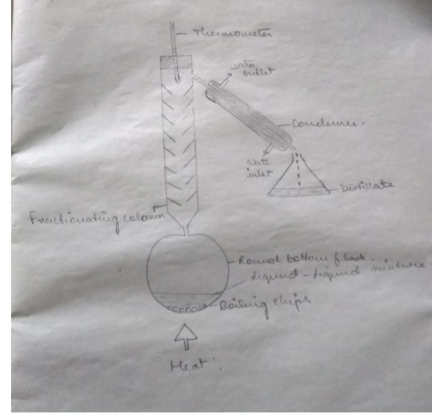 Thermometer
water
outlet
Condenser.
water
inlet
Distillate
Fractionating column
Round bottom flask.
Liquid-Liquid mixture
Boiling chips
Heat.